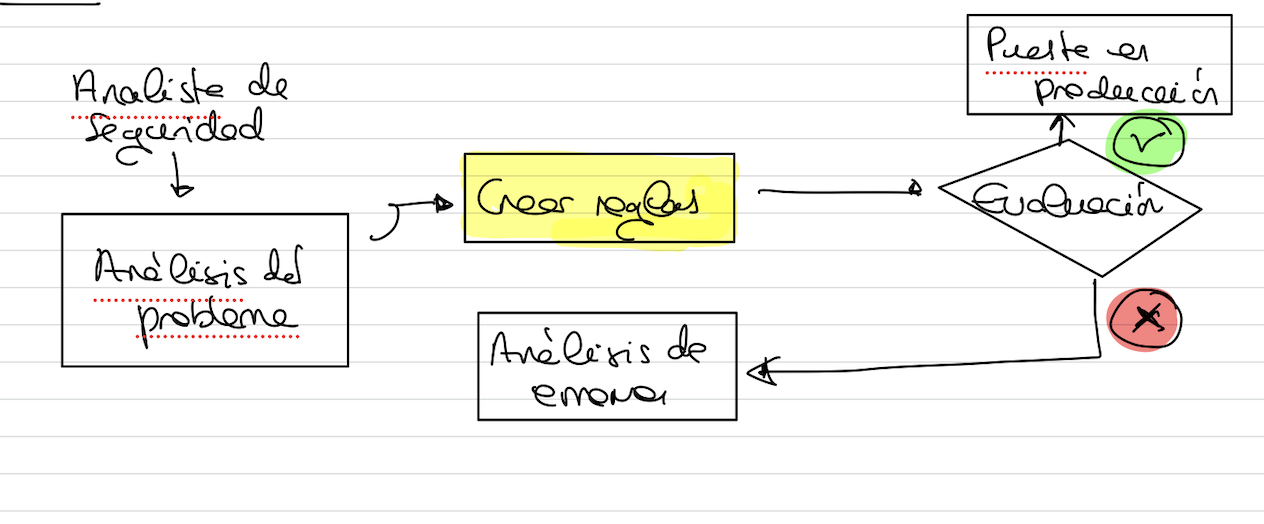 Analista de
seguridad
Análisis del
problema
Crear reglas
Evaluación
Puesta en
producción
Análisis de
errores